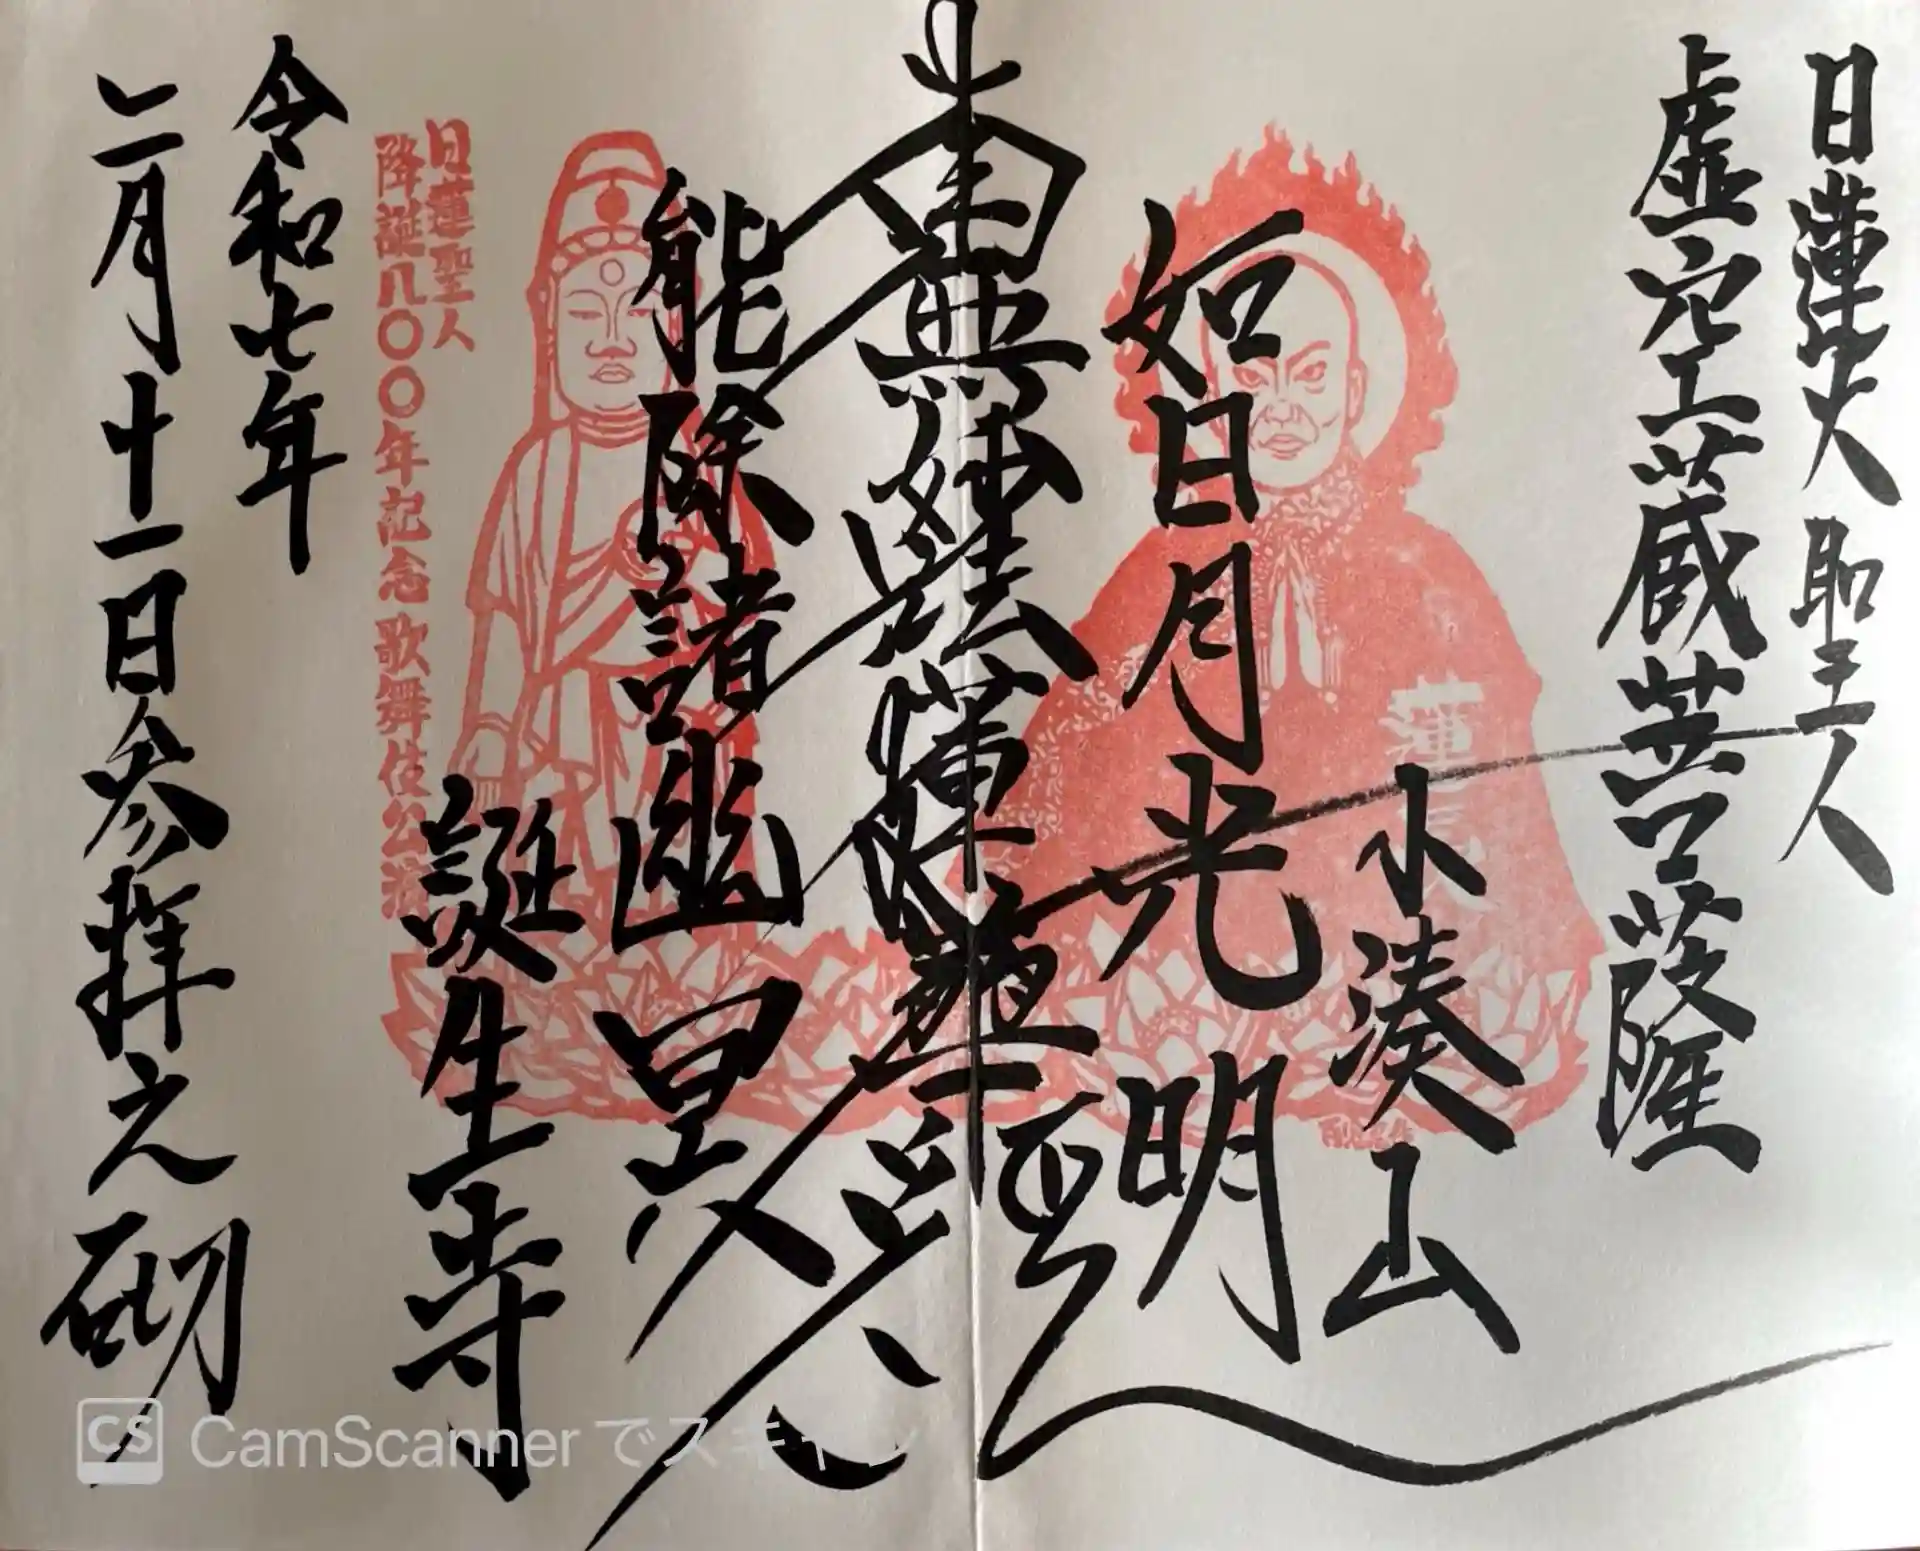 日蓮大聖人
虚空蔵菩薩
小湊山
如日月光明
南無妙法蓮華経
能除諸幽冥
誕生寺
日蓮聖人
降誕八〇〇年記念歌舞伎公演
令和七年
二月十一日参拝之砌
CS CamScannerでスキャン